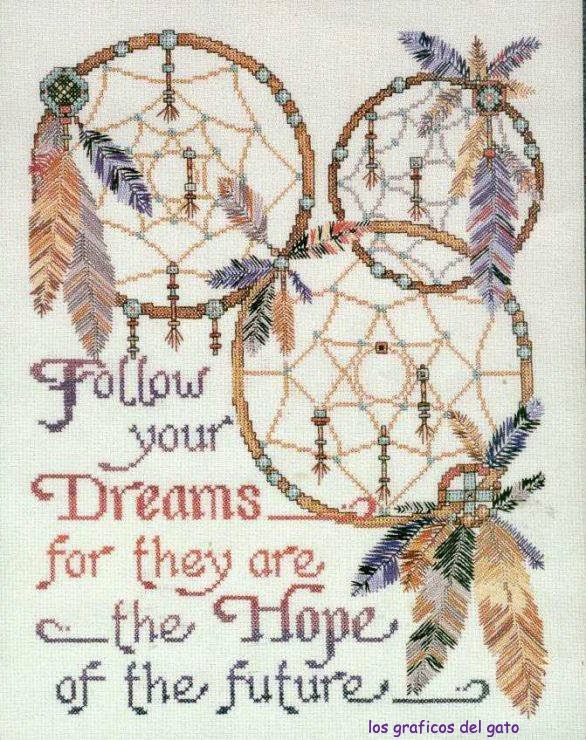 Follow
your
Dreams
for they are
the Hope
of the future
los graficos del gato